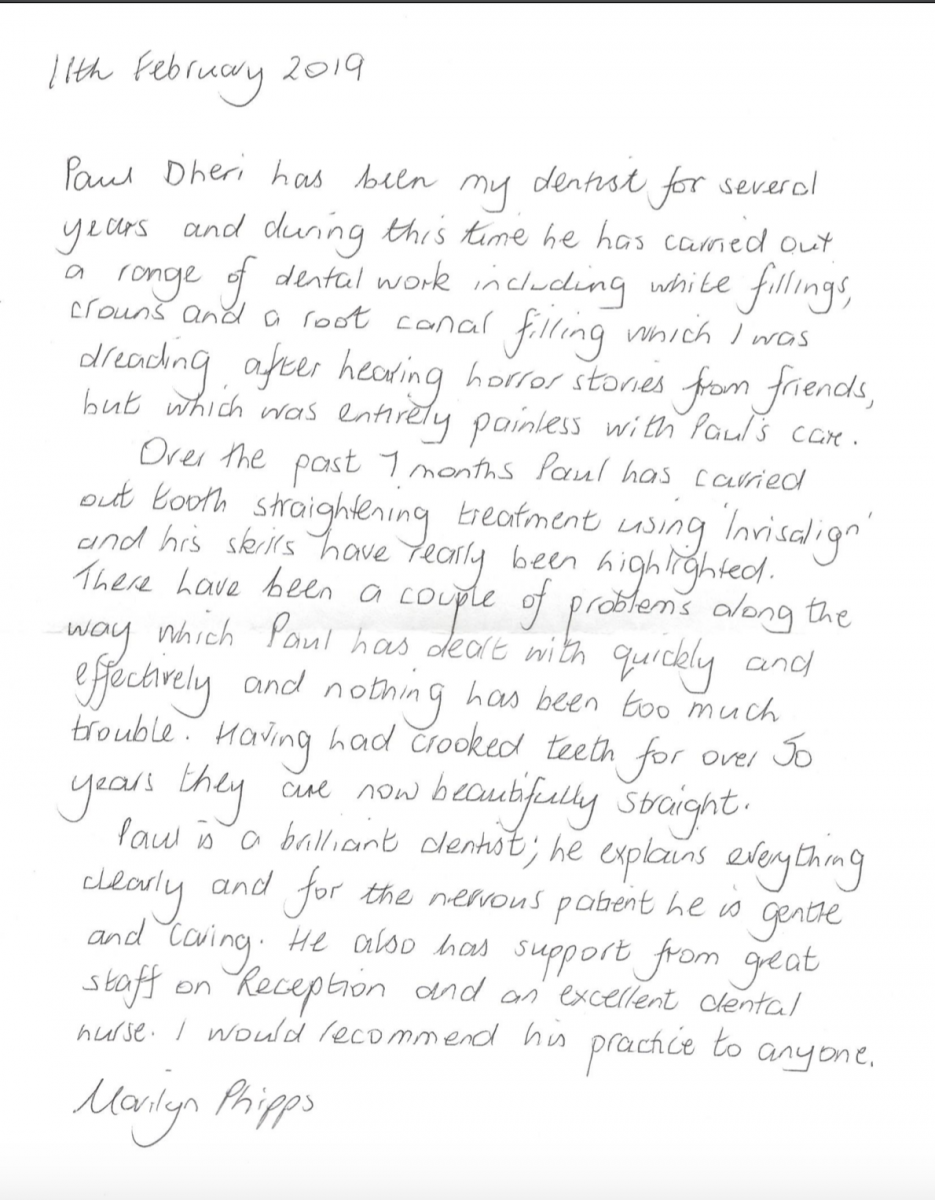 11th February 2019
Paul Dheri has been my dentist for several
years and during this time he has carried out
a range of dental work including white fillings,
crowns and a root canal filling which I was
dreading after hearing horror stories from friends,
but which was entirely painless with Paul's care.
Over the past 7 months Paul has carried
out tooth straightening treatment using 'Invisalign'
and his skills have really been highlighted.
There have been a couple of problems along the
way which Paul has dealt with quickly and
effectively and nothing has been too much
trouble. Having had crooked teeth for over 50
years they are now beautifully straight.
Paul is a brilliant dentist; he explains everything
clearly and for the nervous patient he is gentle
and caring. He also has support from great
staff on Reception and an excellent dental
nurse. I would recommend his practice to anyone.
Marilyn Phipps